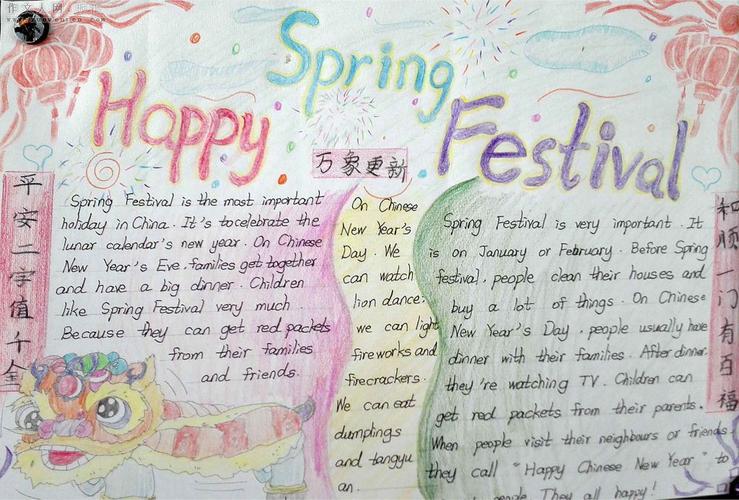 作文人网
Happy
Spring
Festival
万象更新
平安二字值千金
Spring Festival is the most important
holiday in China. It's to celebrate the
lunar calendar's new year. On Chinese
New Year's Eve. families get together
and have a big dinner. Children
like Spring Festival very much.
Because they can get red packets
from their families
and friends.
On Chinese
New Year's
Day. We
can watch
lion dance.
we can light
fireworks and
firecrackers.
We can eat
dumplings
and tangyu
an.
Spring Festival is very important. It
is on January or February. Before Spring
festival, people clean their houses and
buy a lot of things. On Chinese
New Year's Day, people usually have
dinner with their families. After dinner.
they're watching TV. Children can
get red packets from their parents.
When people visit their neighbours or friends,
they call "Happy Chinese New Year" to
people They all happy!
和顺一门有百福